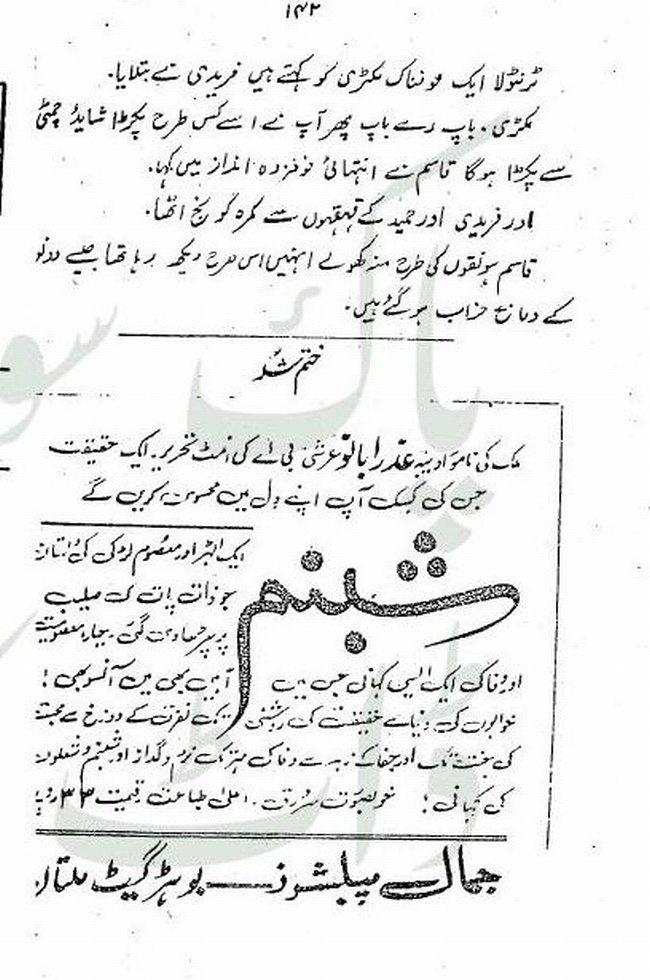 ۱۴۲
ٹرنٹولا ایک خوفناک مکڑی کو کہتے ہیں فریدی نے بتلایا۔
مکڑی۔ باپ رے باپ پھر آپ نے اسے کس طرح پکڑا شاید چمٹی
سے پکڑا ہوگا قاسم نے انتہائی خوفزدہ انداز میں کہا۔
اور فریدی اور حمید کے قہقہوں سے کمرہ گونج اٹھا۔
قاسم ہونقوں کی طرح منہ کھولے انہیں اس طرح دیکھ رہا تھا جیسے دونو
کے دماغ خراب ہو گئے ہیں۔
ختم شد
ملک کی نامور ادیبہ عذرا بانو عرشی بی اے کی انمٹ تحریر۔ ایک حقیقت
جس کی کسک آپ اپنے دل میں محسوس کریں گے
شبنم
ایک الہڑ اور معصوم لڑکی کی داستان
جو ذات پات کی صلیب
پر چڑھا دی گئی۔
اور وفا کی ایک ایسی کہانی جس میں آہیں بھی ہیں آنسو بھی!
خوابوں کی دنیا سے حقیقت کی روشنی تک نفرت کے دوزخ سے محبت
کی جنت تک اور جفا کے زہر سے وفا کی تک نرم و گداز اور شبنم و شعلوں
کی کہانی! خوبصورت سرورق۔ اعلیٰ طباعت قیمت ۳۳ روپ
جمال پبلشرز بوہڑ گیٹ ملتان
پاک سو